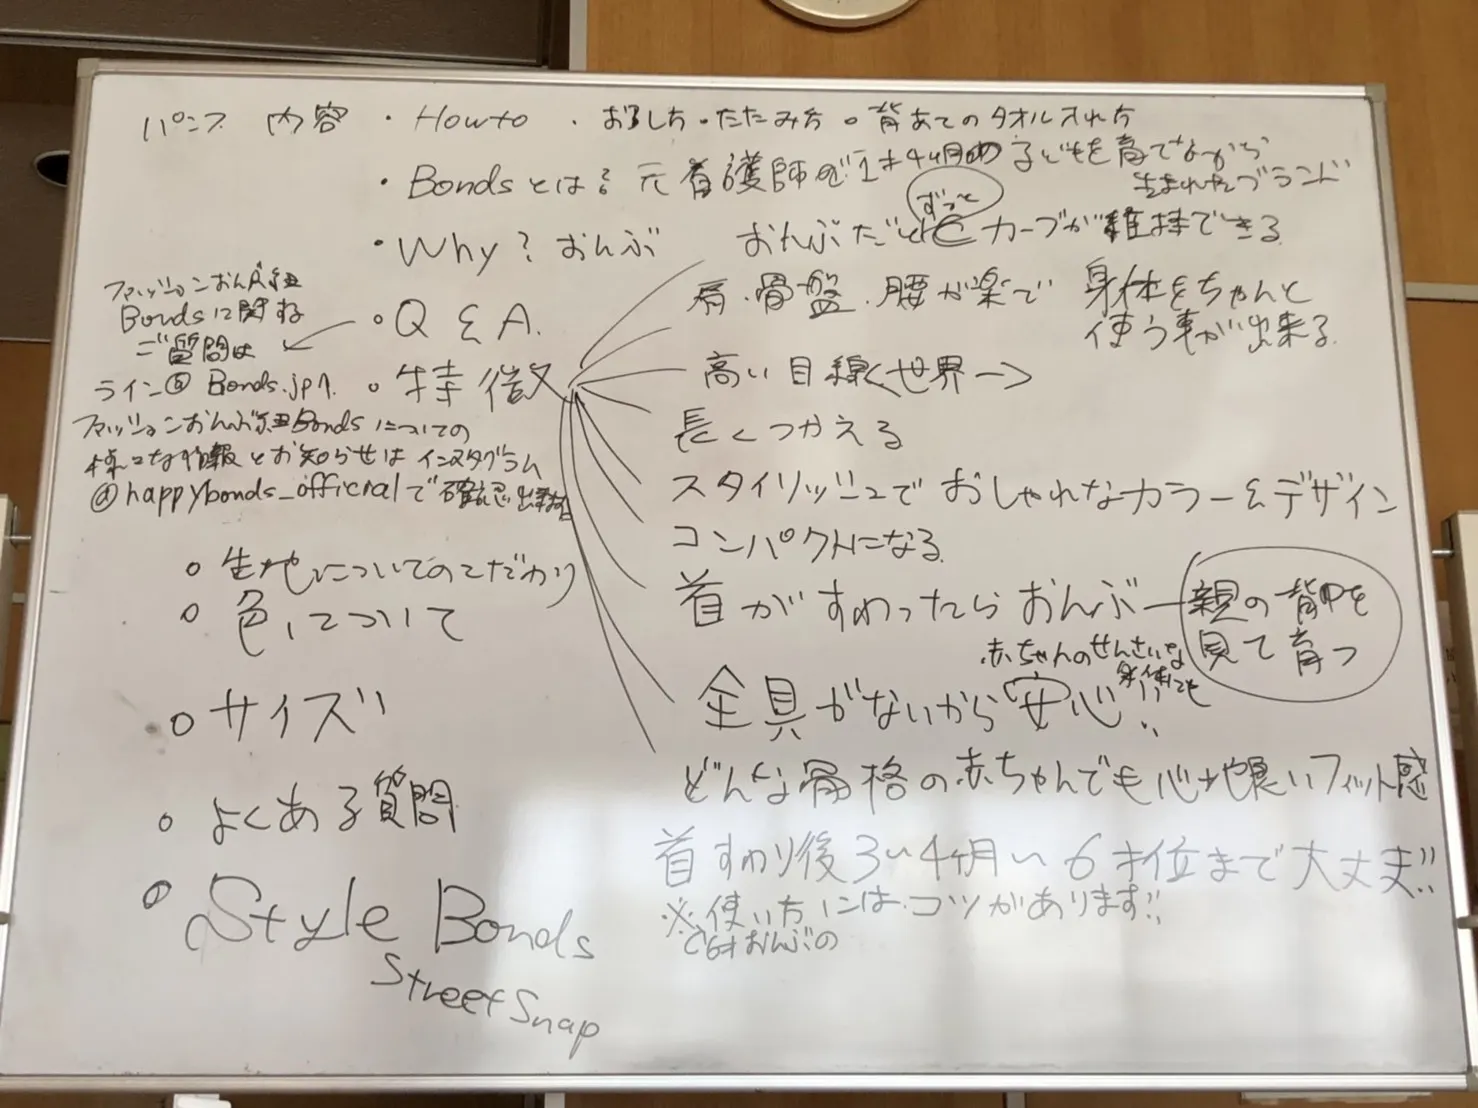 パンフ 内容 ・How to ・おろし方 ・たたみ方 。背あてのタオル入れ方
・Bondsとは? 元看護師で1才4ヶ月の子どもを育てながら
生まれたブランド
・Why? おんぶ
ずっと
おんぶだとCカーブが維持できる
ファッションおんぶ紐
Bondsに関する
ご質問は
ライン@ Bonds.jpへ
・Q&A.
。特徴
肩・骨盤・腰が楽で
身体をちゃんと
使う事が出来る
高い目線<世界→
長くつかえる
スタイリッシュでおしゃれなカラー&デザイン
コンパクトになる
首がすわったらおんぶー親の背中を
見て育つ
赤ちゃんのせんさいな
身体にも
金具がないから安心!!
どんな骨格の赤ちゃんでも心地良いフィット感
首すわり後3〜4ヶ月〜6才位まで大丈夫!!
※使い方にはコツがあります!!
6才おんぶの
ファッションおんぶ紐Bondsについての
様々な情報とお知らせはインスタグラム
@happybonds_officialで確認出来ます
。生地についてのこだわり
。色について
。サイズ
。よくある質問
。Style Bonds
Street Snap